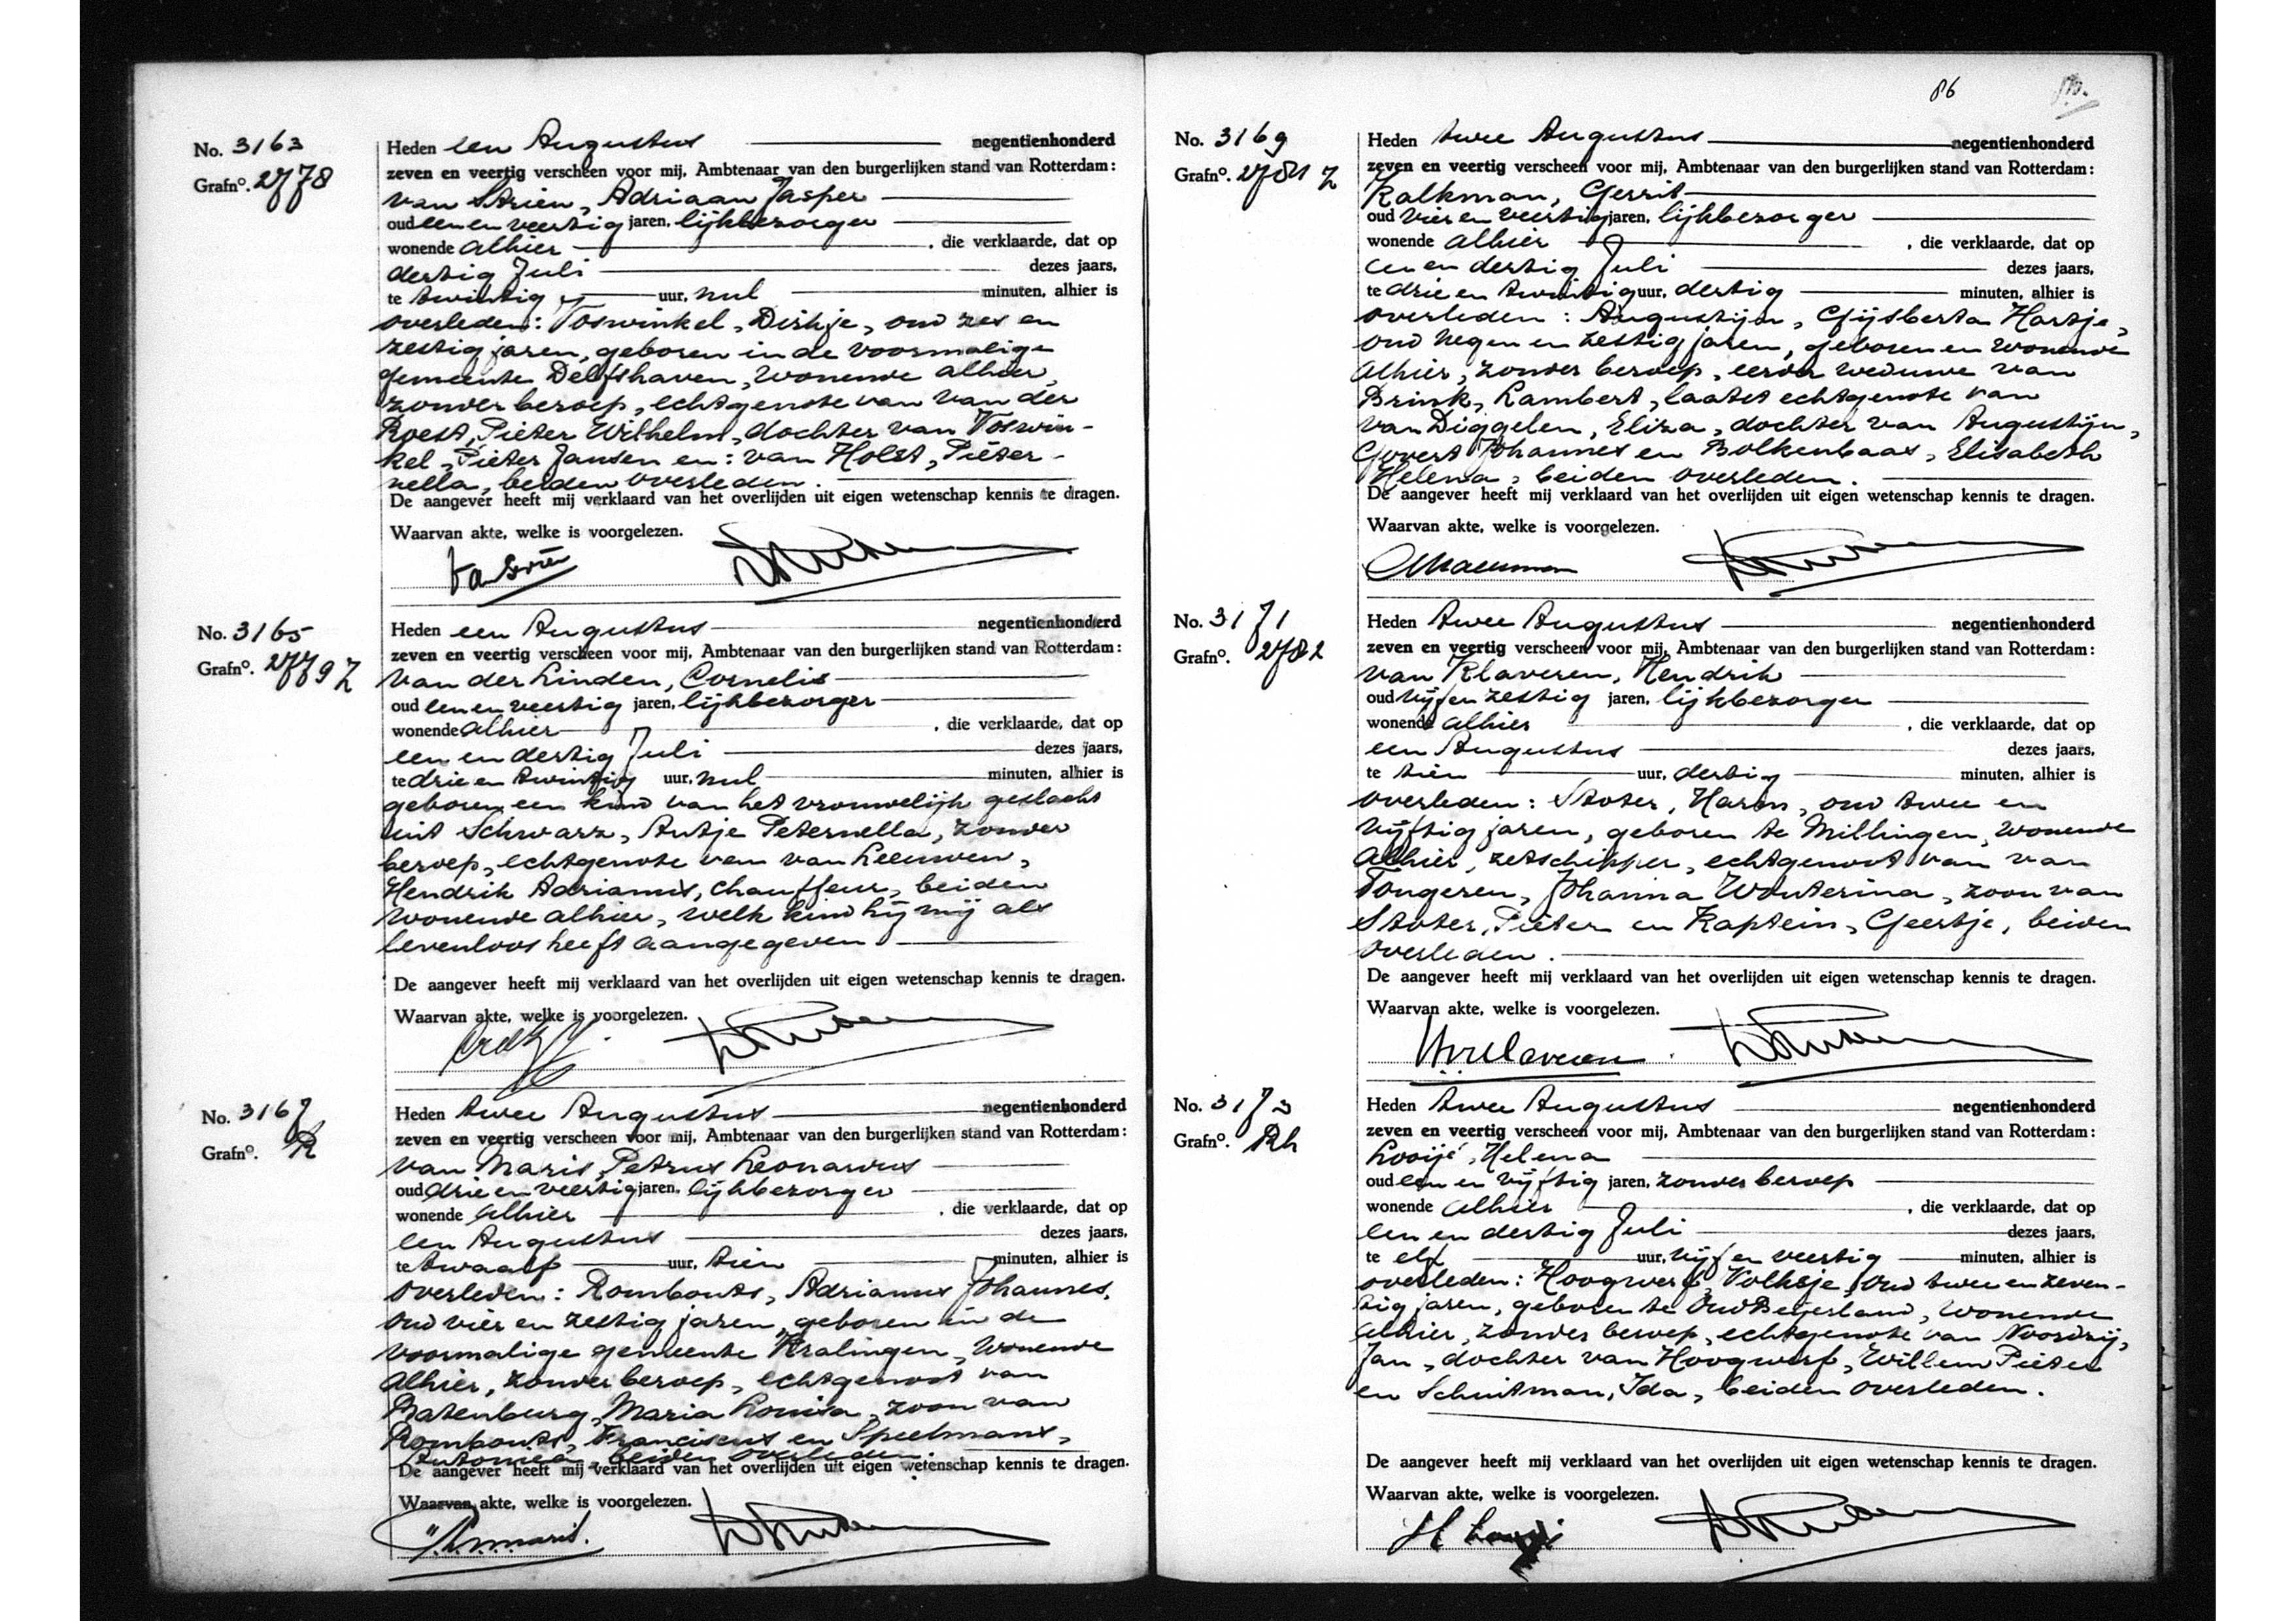 No. 3163
Grafno. 2778
Heden een Augustus negentienhonderd
zeven en veertig verscheen voor mij, Ambtenaar van den burgerlijken stand van Rotterdam:
van Driën, Adriaan Jasper
oud een en veertig jaren, lijkbezorger
wonende alhier, die verklaarde, dat op
dertig Juli dezes jaars,
te twintig uur, nul minuten, alhier is
overleden: Voswinkel, Dirkje, oud zes en
zestig jaren, geboren in de voormalige
gemeente Delfshaven, wonende alhier,
zonder beroep, echtgenote van van der
Roest, Pieter Wilhelm, dochter van Voswin-
kel, Pieter Jansen en: van Holst, Pieter-
nella, beiden overleden.
De aangever heeft mij verklaard van het overlijden uit eigen wetenschap kennis te dragen.
Waarvan akte, welke is voorgelezen.
No. 3165
Grafno. 2779 Z
Heden een Augustus negentienhonderd
zeven en veertig verscheen voor mij, Ambtenaar van den burgerlijken stand van Rotterdam:
van der Linden, Cornelis
oud een en veertig jaren, lijkbezorger
wonende alhier, die verklaarde, dat op
een en dertig Juli dezes jaars,
te drie en twintig uur, nul minuten, alhier is
geboren een kind van het vrouwelijk geslacht
uit Schwarz, Antje Peternella, zonder
beroep, echtgenote van van Leeuwen,
Hendrik Adrianus, chauffeur, beiden
wonende alhier, welk kind hij mij als
levenloos heeft aangegeven
De aangever heeft mij verklaard van het overlijden uit eigen wetenschap kennis te dragen.
Waarvan akte, welke is voorgelezen.
No. 3167
Grafno. R
Heden twee Augustus negentienhonderd
zeven en veertig verscheen voor mij, Ambtenaar van den burgerlijken stand van Rotterdam:
van Maris, Petrus Leonardus
oud drie en veertig jaren, lijkbezorger
wonende alhier, die verklaarde, dat op
een Augustus dezes jaars,
te twaalf uur, tien minuten, alhier is
overleden: Rombouts, Adrianus Johannes,
oud vier en zestig jaren, geboren in de
voormalige gemeente Kralingen, wonende
alhier, zonder beroep, echtgenoot van
Batenburg, Maria Louisa, zoon van
Rombouts, Franciscus en Speelmans,
Antonia, beiden overleden.
De aangever heeft mij verklaard van het overlijden uit eigen wetenschap kennis te dragen.
Waarvan akte, welke is voorgelezen.
86
No. 3169
Grafno. 2781 Z
Heden twee Augustus negentienhonderd
zeven en veertig verscheen voor mij, Ambtenaar van den burgerlijken stand van Rotterdam:
Kalkman, Gerrit
oud vier en veertig jaren, lijkbezorger
wonende alhier, die verklaarde, dat op
een en dertig Juli dezes jaars,
te drie en twintig uur, dertig minuten, alhier is
overleden: Augustijn, Gijsberta Hartje,
oud negen en zestig jaren, geboren en wonende
alhier, zonder beroep, eerder weduwe van
Brink, Lambert, laatst echtgenote van
van Diggelen, Eliza, dochter van Augustijn,
Govert Johannes en Bolkenbaas, Elisabeth
Helena, beiden overleden.
De aangever heeft mij verklaard van het overlijden uit eigen wetenschap kennis te dragen.
Waarvan akte, welke is voorgelezen.
No. 3171
Grafno. 2782
Heden twee Augustus negentienhonderd
zeven en veertig verscheen voor mij, Ambtenaar van den burgerlijken stand van Rotterdam:
van Klaveren, Hendrik
oud vijf en zestig jaren, lijkbezorger
wonende alhier, die verklaarde, dat op
een Augustus dezes jaars,
te tien uur, dertig minuten, alhier is
overleden: Stoter, Harm, oud twee en
vijftig jaren, geboren te Millingen, wonende
alhier, zetschipper, echtgenoot van van
Tongeren, Johanna Wouterina, zoon van
Stoter, Pieter en Kaptein, Geertje, beiden
overleden.
De aangever heeft mij verklaard van het overlijden uit eigen wetenschap kennis te dragen.
Waarvan akte, welke is voorgelezen.
HvKlaveren
No. 3173
Grafno. Rh
Heden twee Augustus negentienhonderd
zeven en veertig verscheen voor mij, Ambtenaar van den burgerlijken stand van Rotterdam:
Looijé, Helena
oud een en vijftig jaren, zonder beroep
wonende alhier, die verklaarde, dat op
een en dertig Juli dezes jaars,
te elf uur, vijf en veertig minuten, alhier is
overleden: Hoogwerf, Volkje, oud twee en zeven-
tig jaren, geboren te Oud Beijerland, wonende
alhier, zonder beroep, echtgenote van Noordzij,
Jan, dochter van Hoogwerf, Willem Pieter
en Schuitman, Ida, beiden overleden.
De aangever heeft mij verklaard van het overlijden uit eigen wetenschap kennis te dragen.
Waarvan akte, welke is voorgelezen.